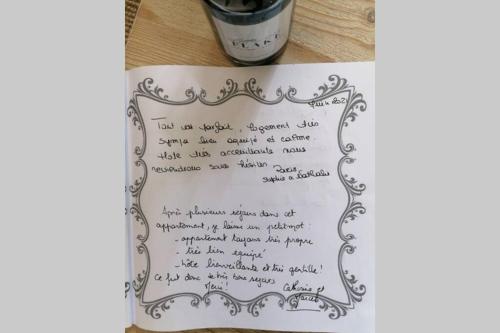 BLAKE
Juin 202
Tout est parfait, logement très
sympa bien équipé et calme.
Hôte très accueillante nous
reviendrons sans hésiter.
Sophie &
Après plusieurs séjours dans cet
appartement, je laisse un petit mot :
- appartement toujours très propre
- très bien équipé
- hôte bienveillante et très gentille !
Ce fut donc de très bons séjours
Merci !
Catherine et